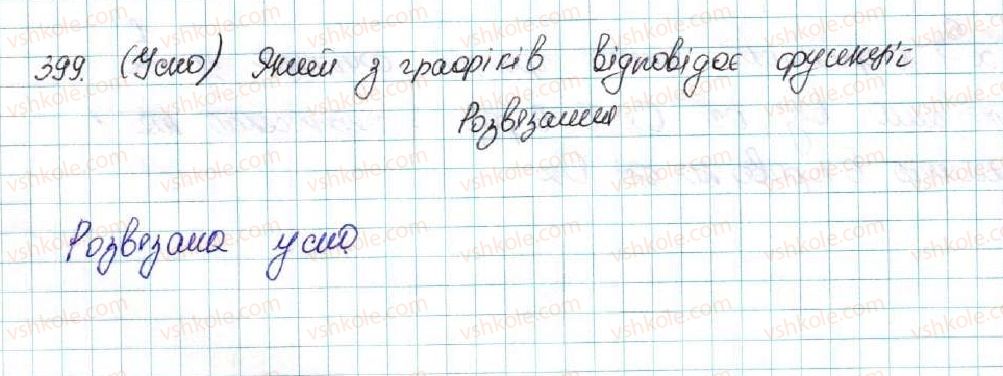 399. (Усно) Який з графіків відповідає функції
Розвязання
Розвязана усно.